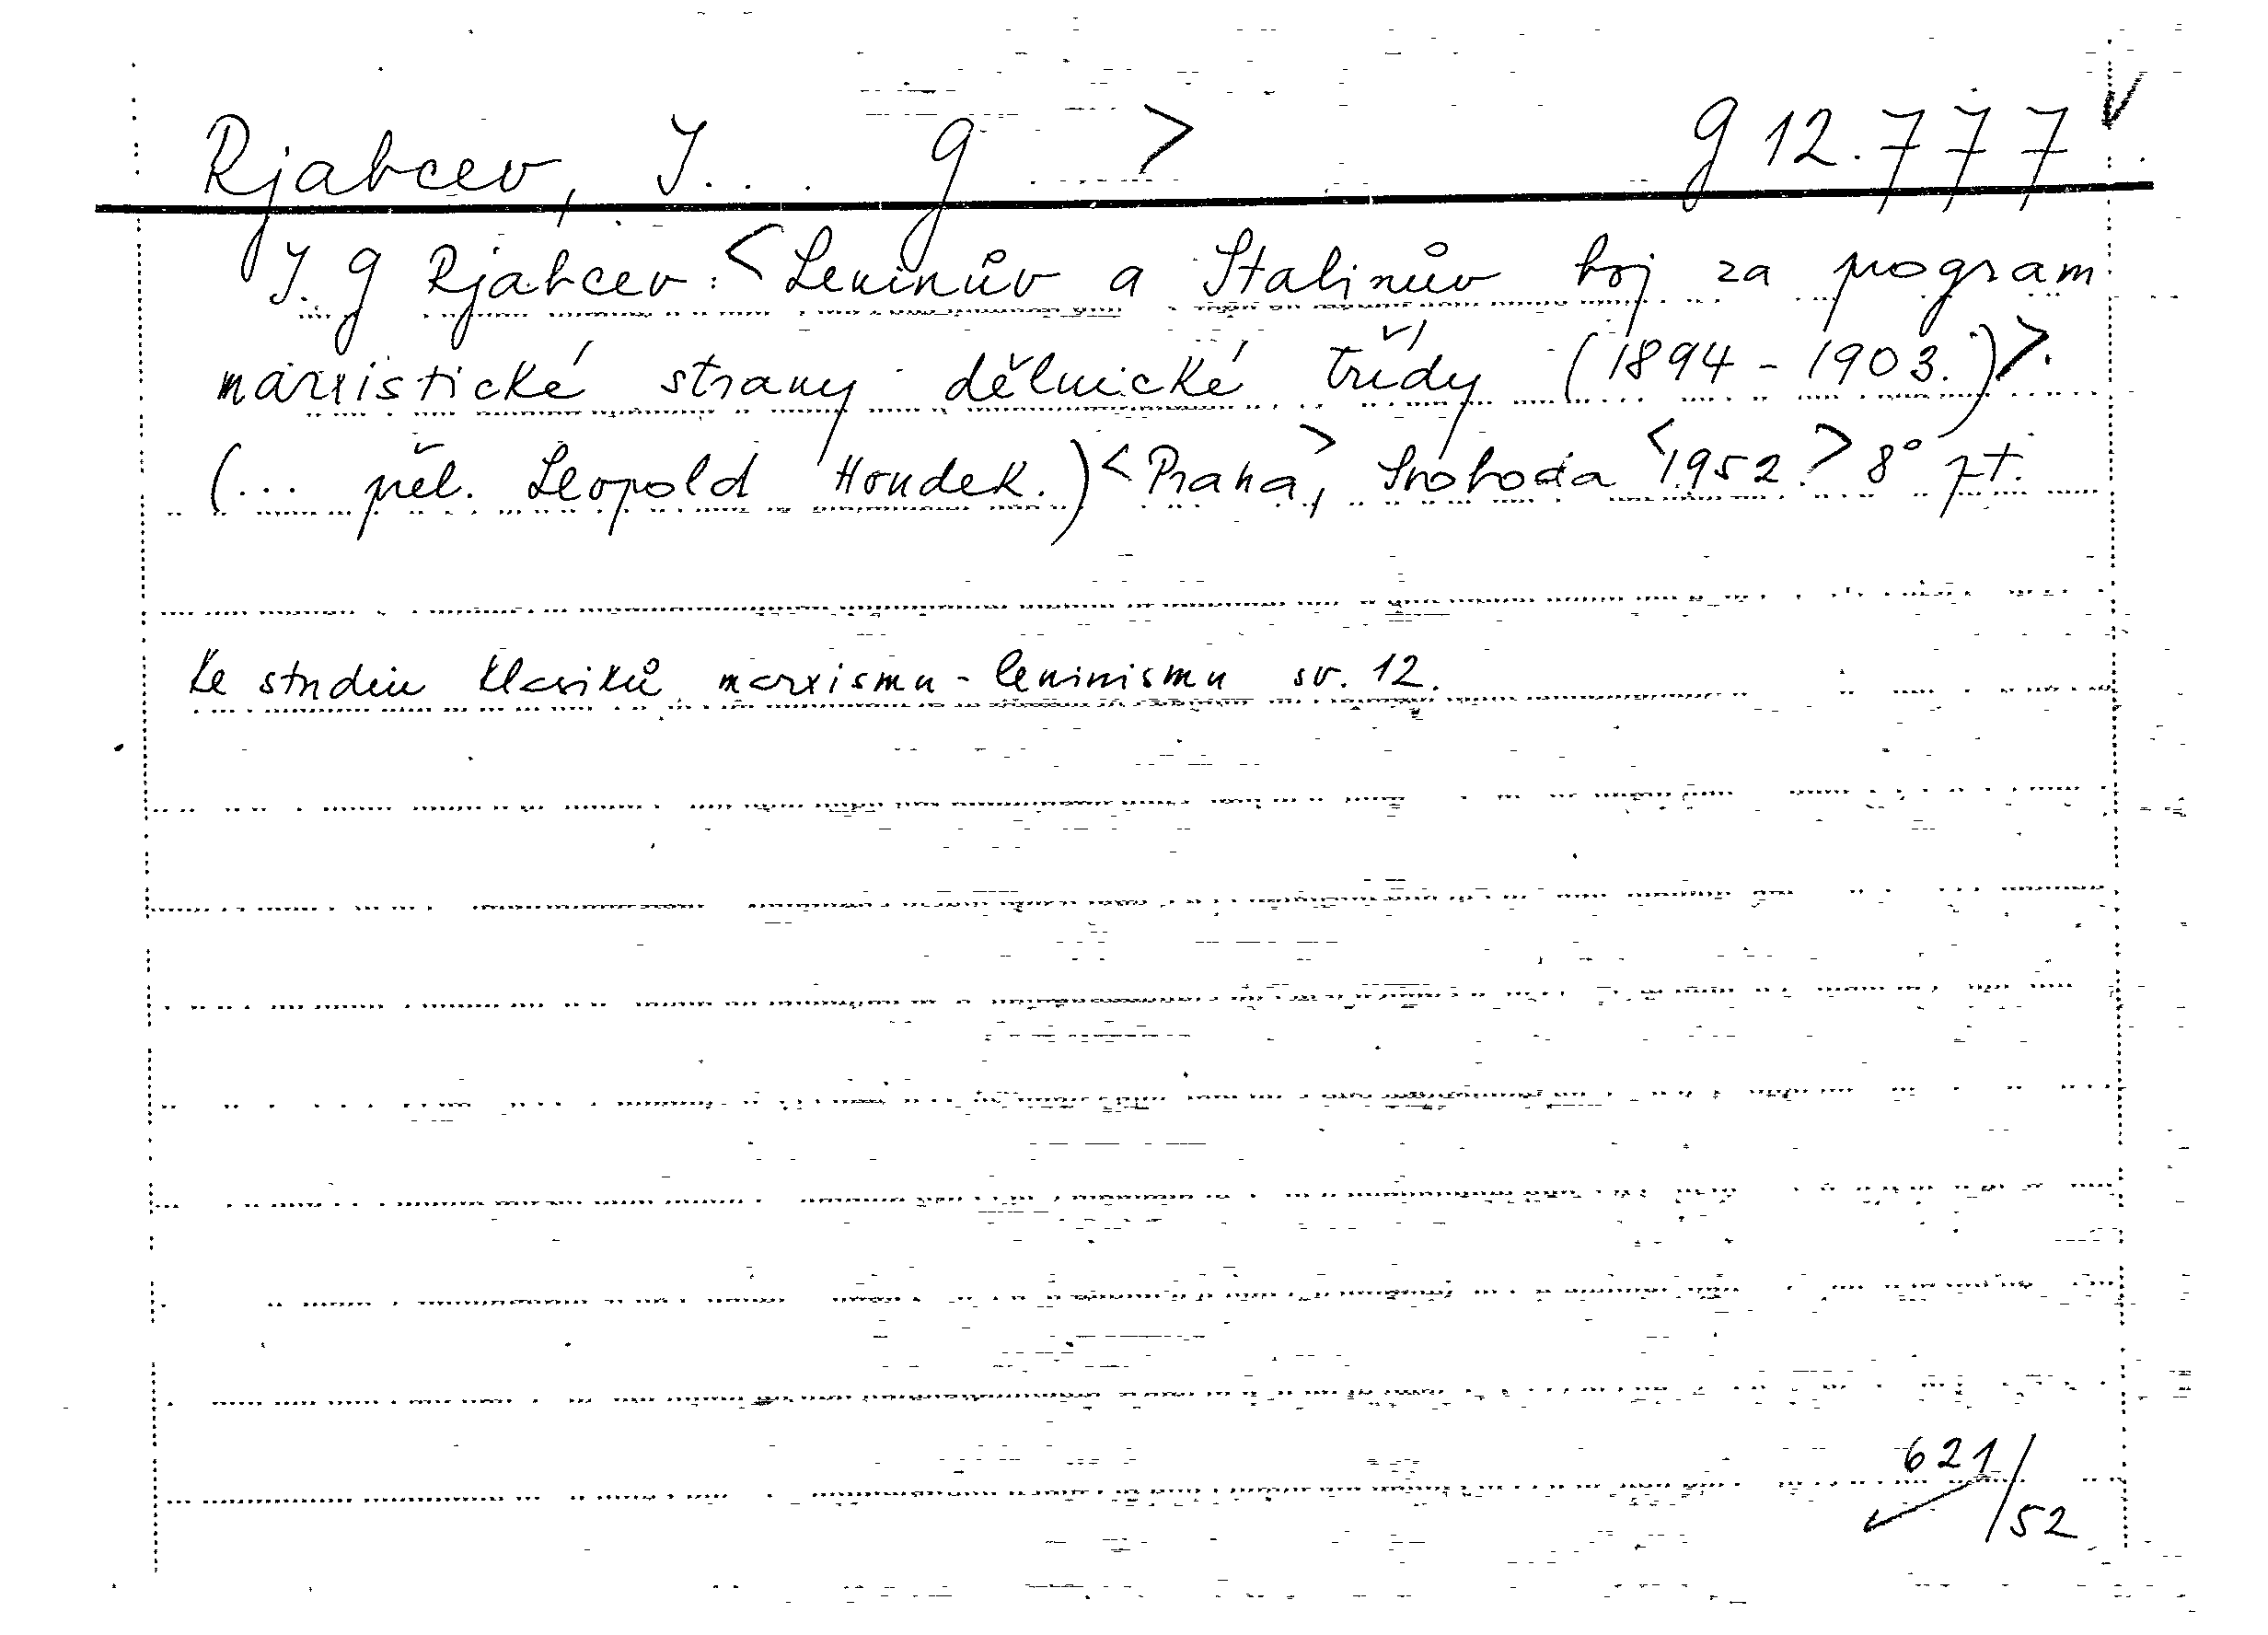 Rjabcev, J... G > G 12.777
J. G Rjabcev: <Leninův a Stalinův boj za program
marxistické strany dělnické třídy (1894-1903.)>.
(... přel. Leopold Houdek.) <Praha>, Svoboda <1952.> 8°
Ke studiu klasiků marxismu-leninismu sv. 12.
621/52